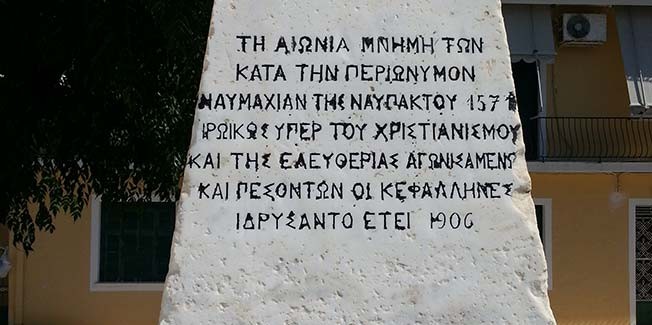 ΤΗ ΑΙΩΝΙΑ ΜΝΗΜΗ ΤΩΝ
ΚΑΤΑ ΤΗΝ ΠΕΡΙΩΝΥΜΟΝ
ΝΑΥΜΑΧΙΑΝ ΤΗΣ ΝΑΥΠΑΚΤΟΥ 1571
ΗΡΩΙΚΩΣ ΥΠΕΡ ΤΟΥ ΧΡΙΣΤΙΑΝΙΣΜΟΥ
ΚΑΙ ΤΗΣ ΕΛΕΥΘΕΡΙΑΣ ΑΓΩΝΙΣΑΜΕΝΩΝ
ΚΑΙ ΠΕΣΟΝΤΩΝ ΟΙ ΚΕΦΑΛΛΗΝΕΣ
ΙΔΡΥΣΑΝΤΟ ΕΤΕΙ 1906